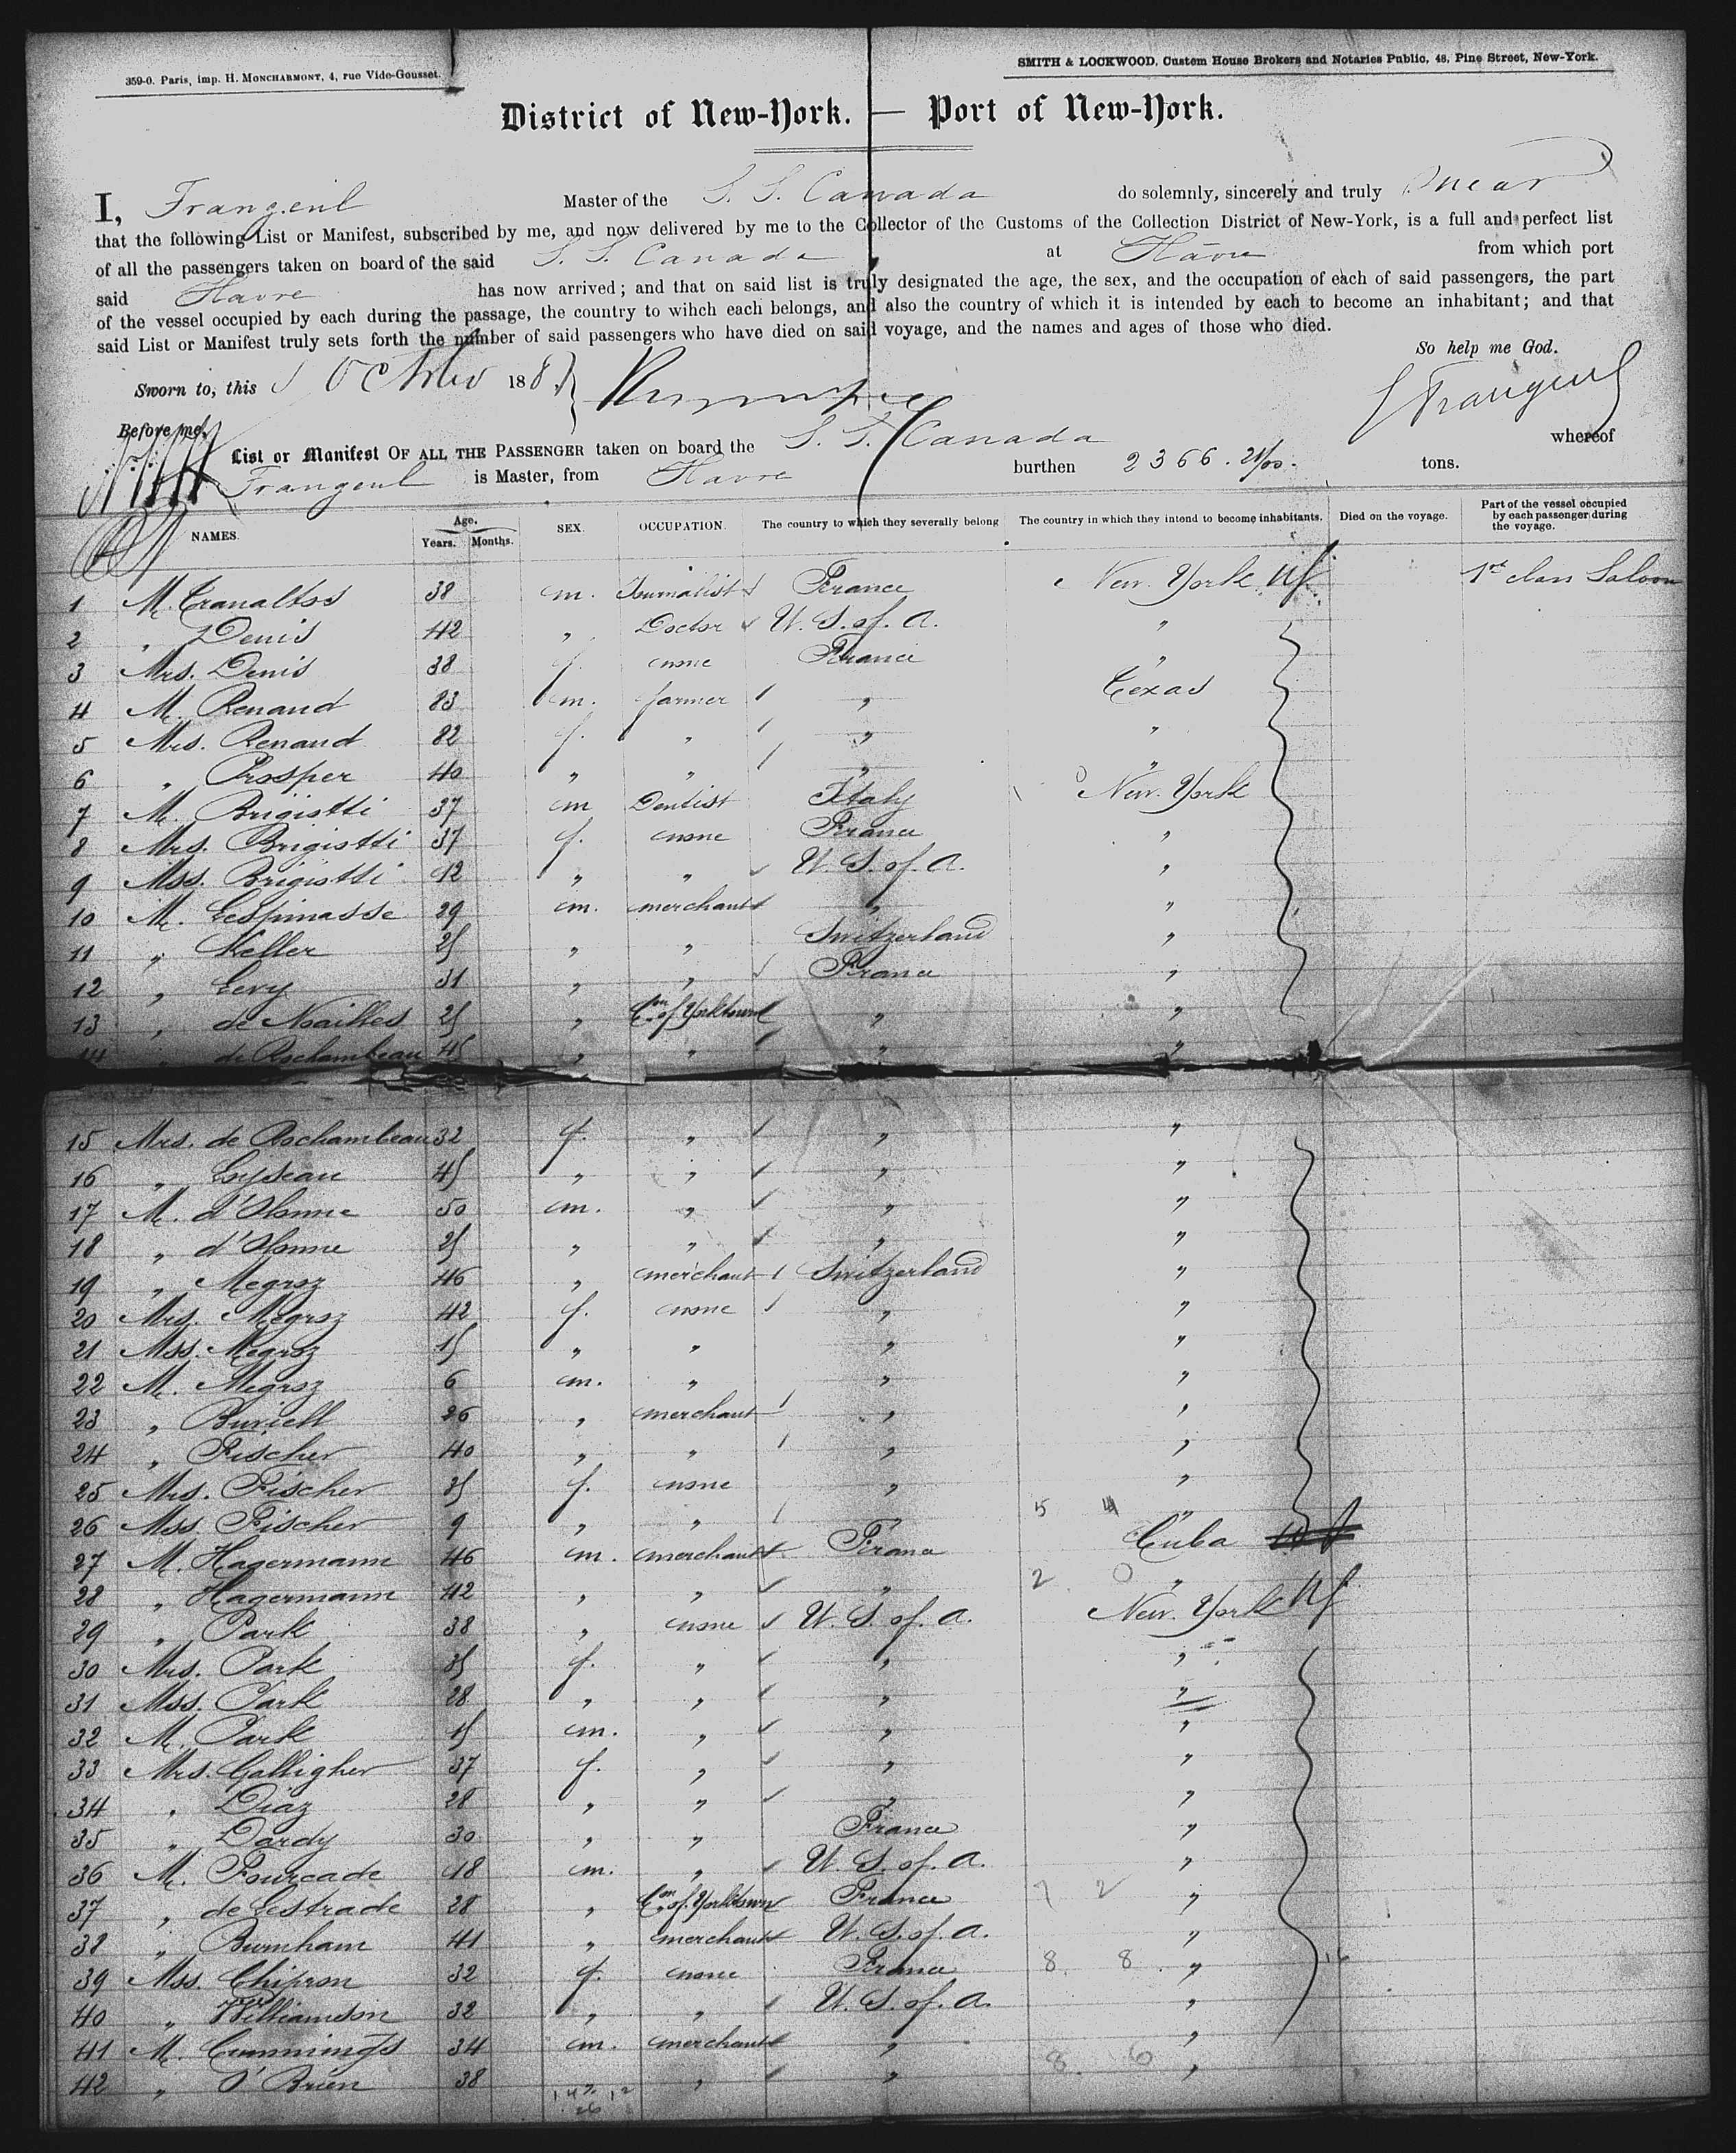 359-0. Paris, imp. H. MONCHARMONT, 4, rue Vide-Gousset.
SMITH & LOCKWOOD, Custom House Brokers and Notaries Public, 48, Pine Street, New-York.
District of New-York. — Port of New-York.
I, Frangeul Master of the S. S. Canada do solemnly, sincerely and truly swear
that the following List or Manifest, subscribed by me, and now delivered by me to the Collector of the Customs of the Collection District of New-York, is a full and perfect list
of all the passengers taken on board of the said S. S. Canada at Hâvre from which port
said Havre has now arrived; and that on said list is truly designated the age, the sex, and the occupation of each of said passengers, the part
of the vessel occupied by each during the passage, the country to wihch each belongs, and also the country of which it is intended by each to become an inhabitant; and that
said List or Manifest truly sets forth the number of said passengers who have died on said voyage, and the names and ages of those who died.
So help me God.
Sworn to, this 5 October 188
Frangeul
Before me,
List or Manifest OF ALL THE PASSENGER taken on board the S. S. Canada whereof
Frangeul is Master, from Havre burthen 2366. 21/00. tons.
NAMES. Age. Years. Months. SEX. OCCUPATION. The country to which they severally belong The country in which they intend to become inhabitants. Died on the voyage. Part of the vessel occupied by each passenger during the voyage.
1 M. 38 m. Journalist France New. York 1st class Saloon
2 " Denis 42 " Doctor U. S. of. A. "
3 Mrs. Denis 38 f. none France "
4 M. Renaud 83 m. farmer " Texas
5 Mrs. Renaud 82 f. " " "
6 " Prosper 40 " " " "
7 M. Brigiotti 37 m Dentist Italy New. York
8 Mrs. Brigiotti 37 f. none France "
9 Mss. Brigiotti 12 " " U. S. of. A. "
10 M. Lespinasse 29 m. merchant " "
11 " Keller 25 " " Switzerland "
12 " Levy 31 " " France "
13 " de Noailles 25 " Con of Yorktown " "
14 " de Rochambeau 45 " " " "
15 Mrs. de Rochambeau 32 f. " " "
16 " 45 " " " "
17 M. d'Olonne 50 m. " " "
18 " d'Olonne 25 " " " "
19 " Megroz 46 " merchant Switzerland "
20 Mrs. Megroz 42 f. none " "
21 Mss. Megroz 15 " " " "
22 M. Megroz 6 m. " " "
23 " 26 " merchant " "
24 " Fischer 40 " " " "
25 Mrs. Fischer 35 f. none " "
26 Mss. Fischer 9 " " " "
27 M. Hagermann 46 m. merchant France Cuba
28 " Hagermann 42 " " " "
29 " Park 38 " none U. S. of. A. New. York
30 Mrs. Park 35 f. " " "
31 Mss. Park 28 " " " "
32 M. Park 15 m. " " "
33 Mrs. Galligher 37 f. " " "
34 " Diaz 28 " " " "
35 " Dardy 30 " " France "
36 M. Fourcade 18 m. " U. S. of. A. "
37 " de Lestrade 28 " Con of. Yorktown France "
38 " Burnham 41 " merchant U. S. of. A. "
39 Mss. Chipron 32 f. none France "
40 " Williamson 32 " " U. S. of. A. "
41 M. Cummings 34 m. merchant " "
42 " O'Brien 38 " " " "